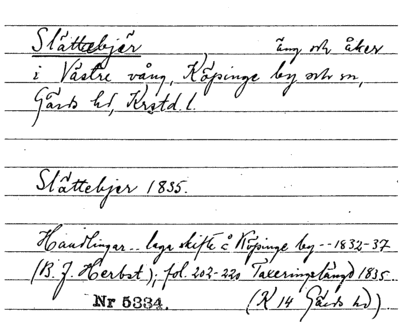 Slättebjer äng och åker
i Västre vång, Köpinge by och sn,
Gärds hd, Krstd. l.
Slättebjer 1835.
Handlingar .. laga skifte å Köpinge by -- 1832-37
(B. J. Herbst); fol. 202-220 Taxeringslängd 1835
Nr 5334. (K 14 Gärds hd)